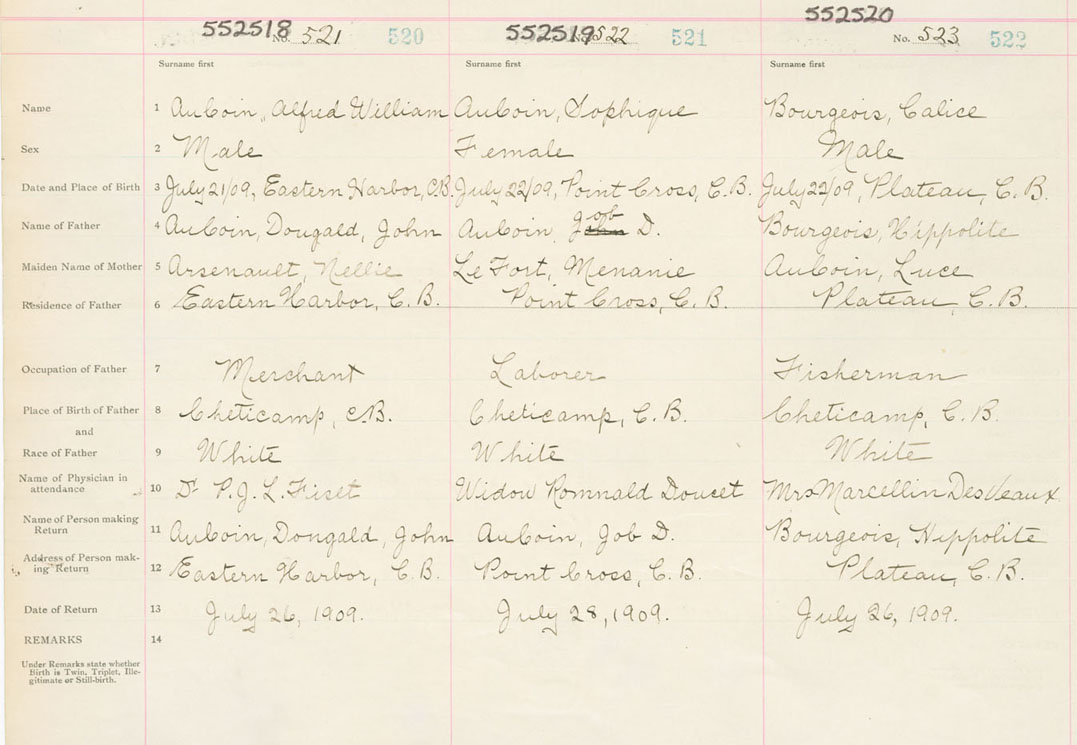 552518 No. 521 520 552519 No. 522 521 552520 No. 523 522
Surname first Surname first Surname first
Name 1 AuCoin, Alfred William AuCoin, Sophique Bourgeois, Calice
Sex 2 Male Female Male
Date and Place of Birth 3 July 21/09, Eastern Harbor, C.B. July 22/09, Point Cross, C.B. July 22/09, Plateau, C.B.
Name of Father 4 AuCoin, Dougald, John AuCoin, Job D. Bourgeois, Hippolite
Maiden Name of Mother 5 Arsenault, Nellie LeFort, Menanie AuCoin, Luce
Residence of Father 6 Eastern Harbor, C.B. Point Cross, C.B. Plateau, C.B.
Occupation of Father 7 Merchant Laborer Fisherman
Place of Birth of Father 8 Cheticamp, C.B. Cheticamp, C.B. Cheticamp, C.B.
and
Race of Father 9 White White White
Name of Physician in
attendance 10 Dr P.J.L. Fiset Widow Romnald Doucet Mrs Marcellin DesVeaux
Name of Person making
Return 11 AuCoin, Dongald, John AuCoin, Job D. Bourgeois, Hippolite
Address of Person mak-
ing Return 12 Eastern Harbor, C.B. Point Cross, C.B. Plateau, C.B.
Date of Return 13 July 26, 1909. July 28, 1909. July 26, 1909.
REMARKS 14
Under Remarks state whether
Birth is Twin, Triplet, Ille-
gitimate or Still-birth.